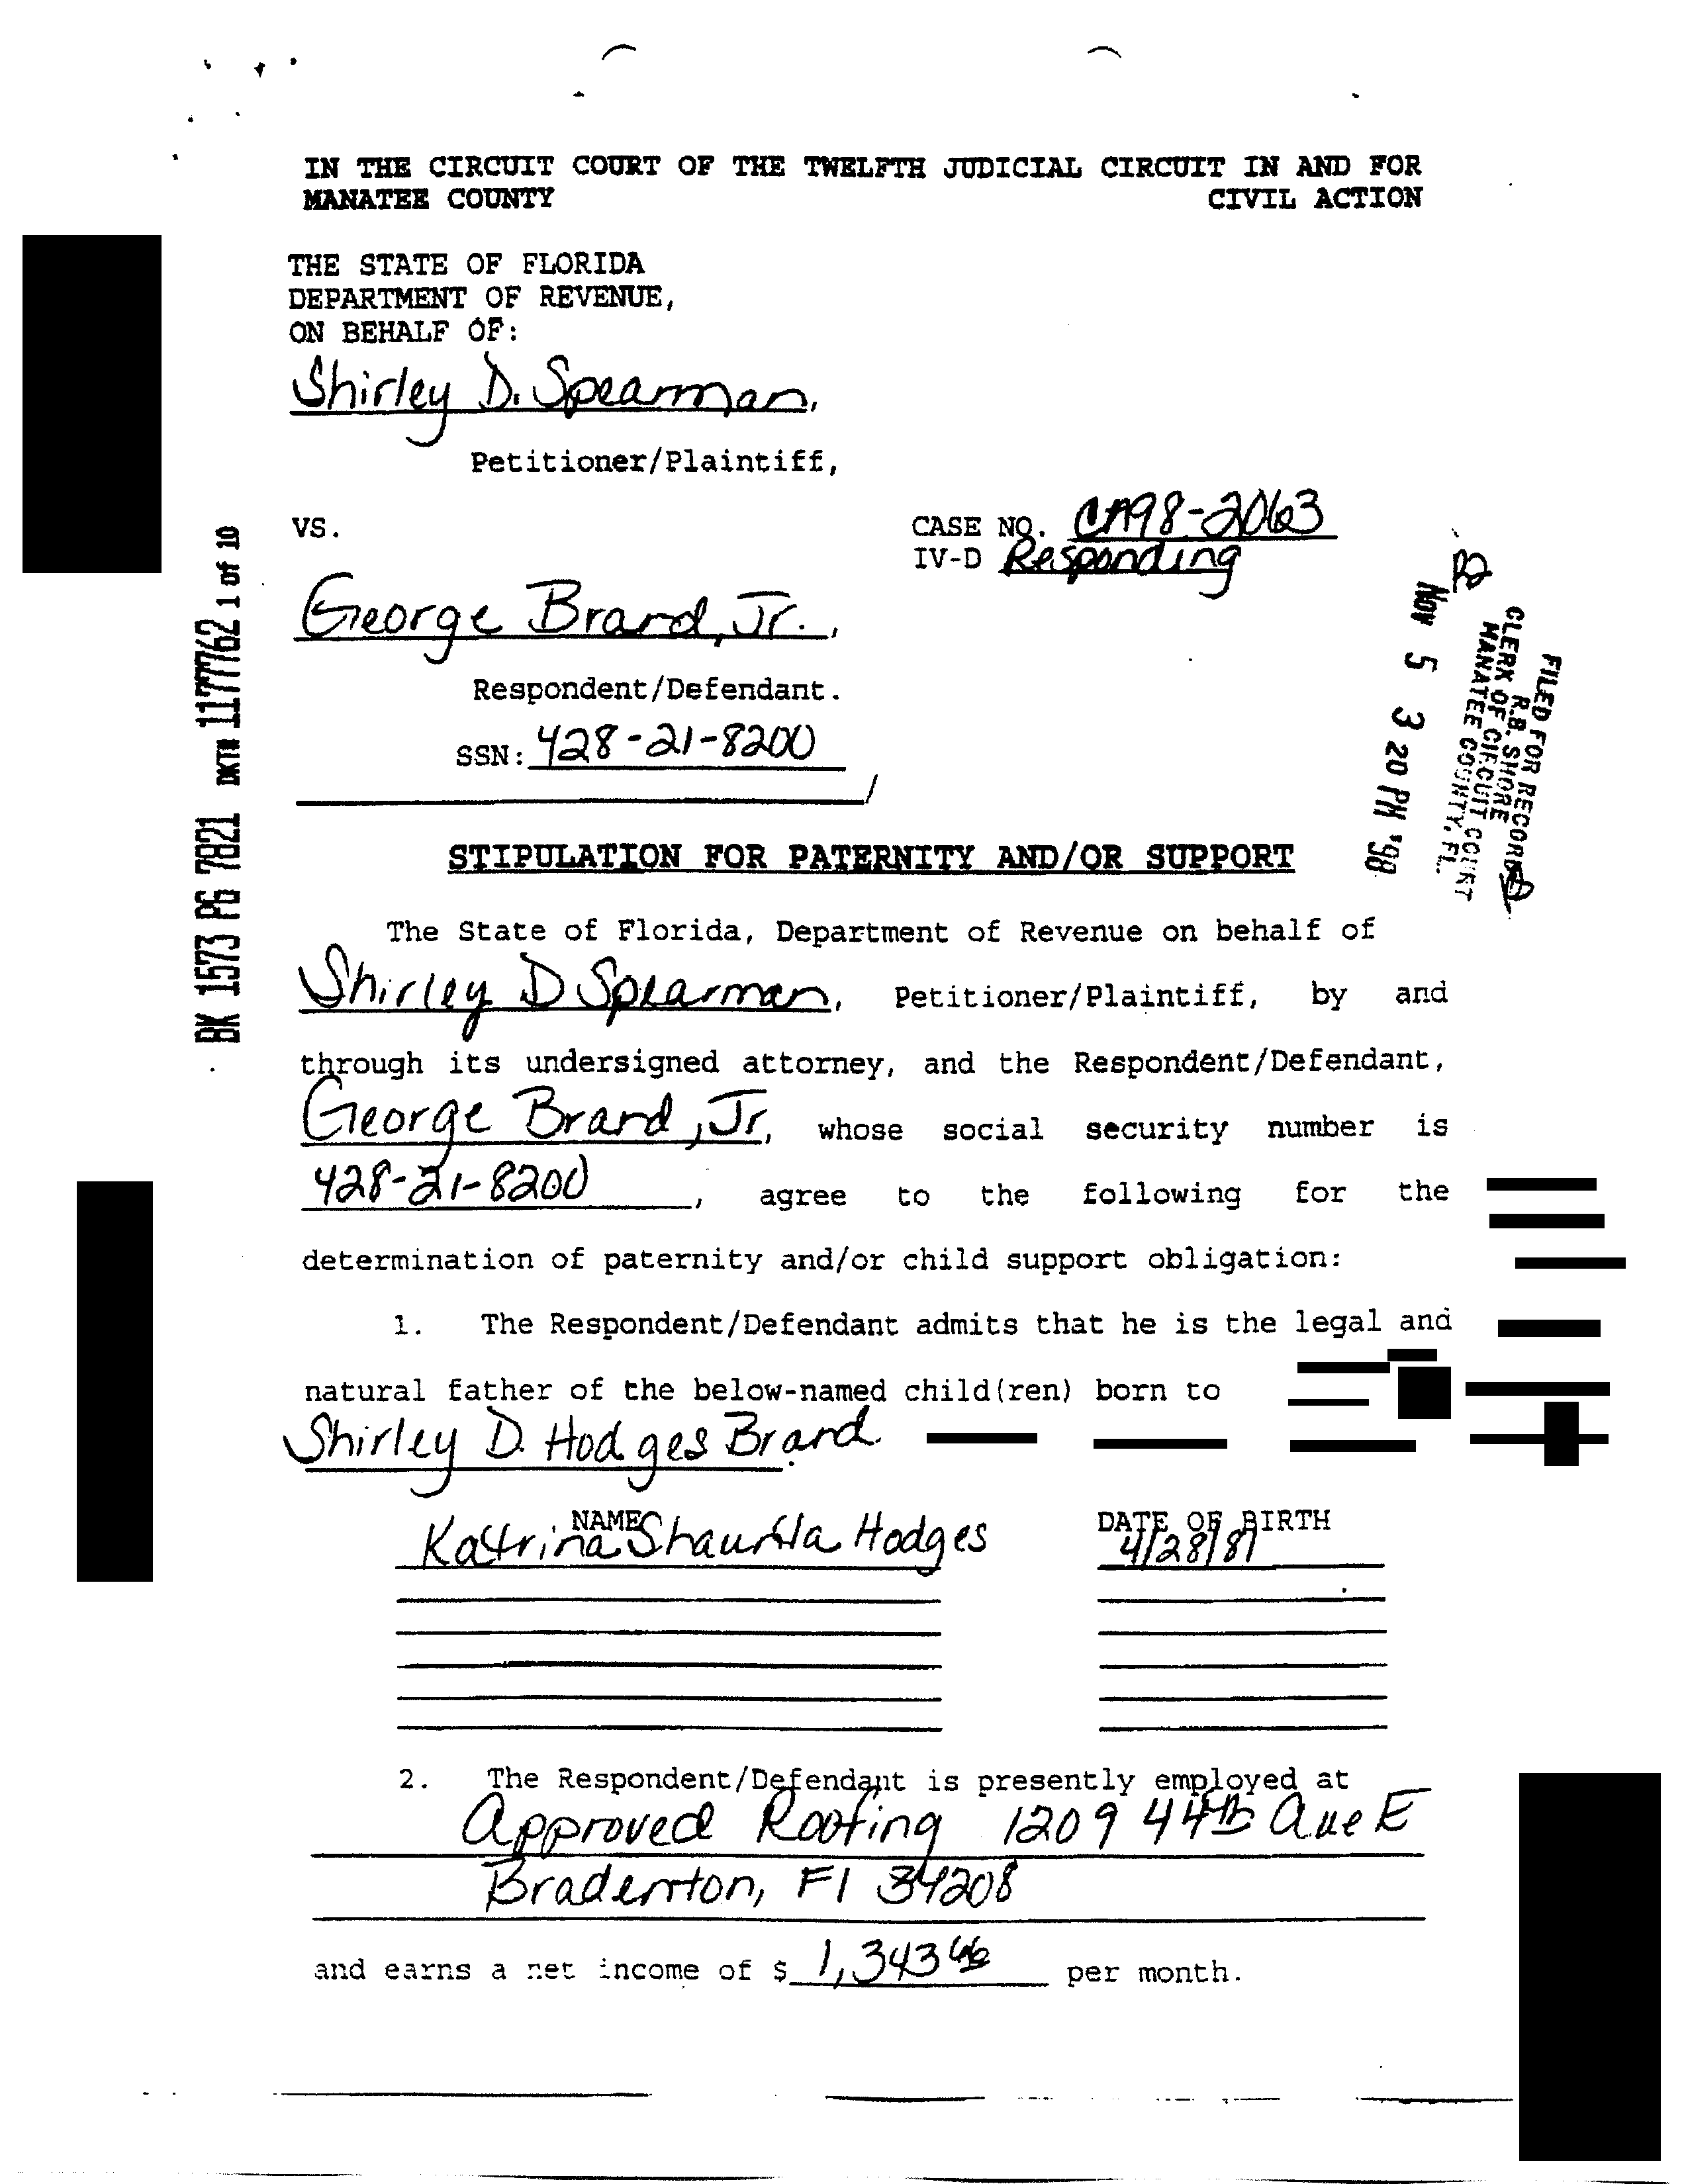 IN THE CIRCUIT COURT OF THE TWELFTH JUDICIAL CIRCUIT IN AND FOR
MANATEE COUNTY CIVIL ACTION
THE STATE OF FLORIDA
DEPARTMENT OF REVENUE,
ON BEHALF OF:
Shirley D. Spearman,
Petitioner/Plaintiff,
VS.
CASE NO. CA98-2063
IV-D Responding
George Brand, Jr.,
Respondent/Defendant.
SSN: 428-21-8200
BK 1573 PG 7821 DKT# 1177762 1 of 10
FILED FOR RECORD
R.B. SHORE
CLERK OF CIRCUIT COURT
MANATEE COUNTY, FL.
Nov 5 3 20 PM '98
STIPULATION FOR PATERNITY AND/OR SUPPORT
The State of Florida, Department of Revenue on behalf of
Shirley D Spearman, Petitioner/Plaintiff, by and
through its undersigned attorney, and the Respondent/Defendant,
George Brand, Jr, whose social security number is
428-21-8200, agree to the following for the
determination of paternity and/or child support obligation:
1. The Respondent/Defendant admits that he is the legal and
natural father of the below-named child(ren) born to
Shirley D. Hodges Brand.
NAME DATE OF BIRTH
Katrina Hodges 4/28/81
2. The Respondent/Defendant is presently employed at
Approved Roofing 1209 44th Ave E
Bradenton, Fl 34208
and earns a net income of $ 1,343 46 per month.